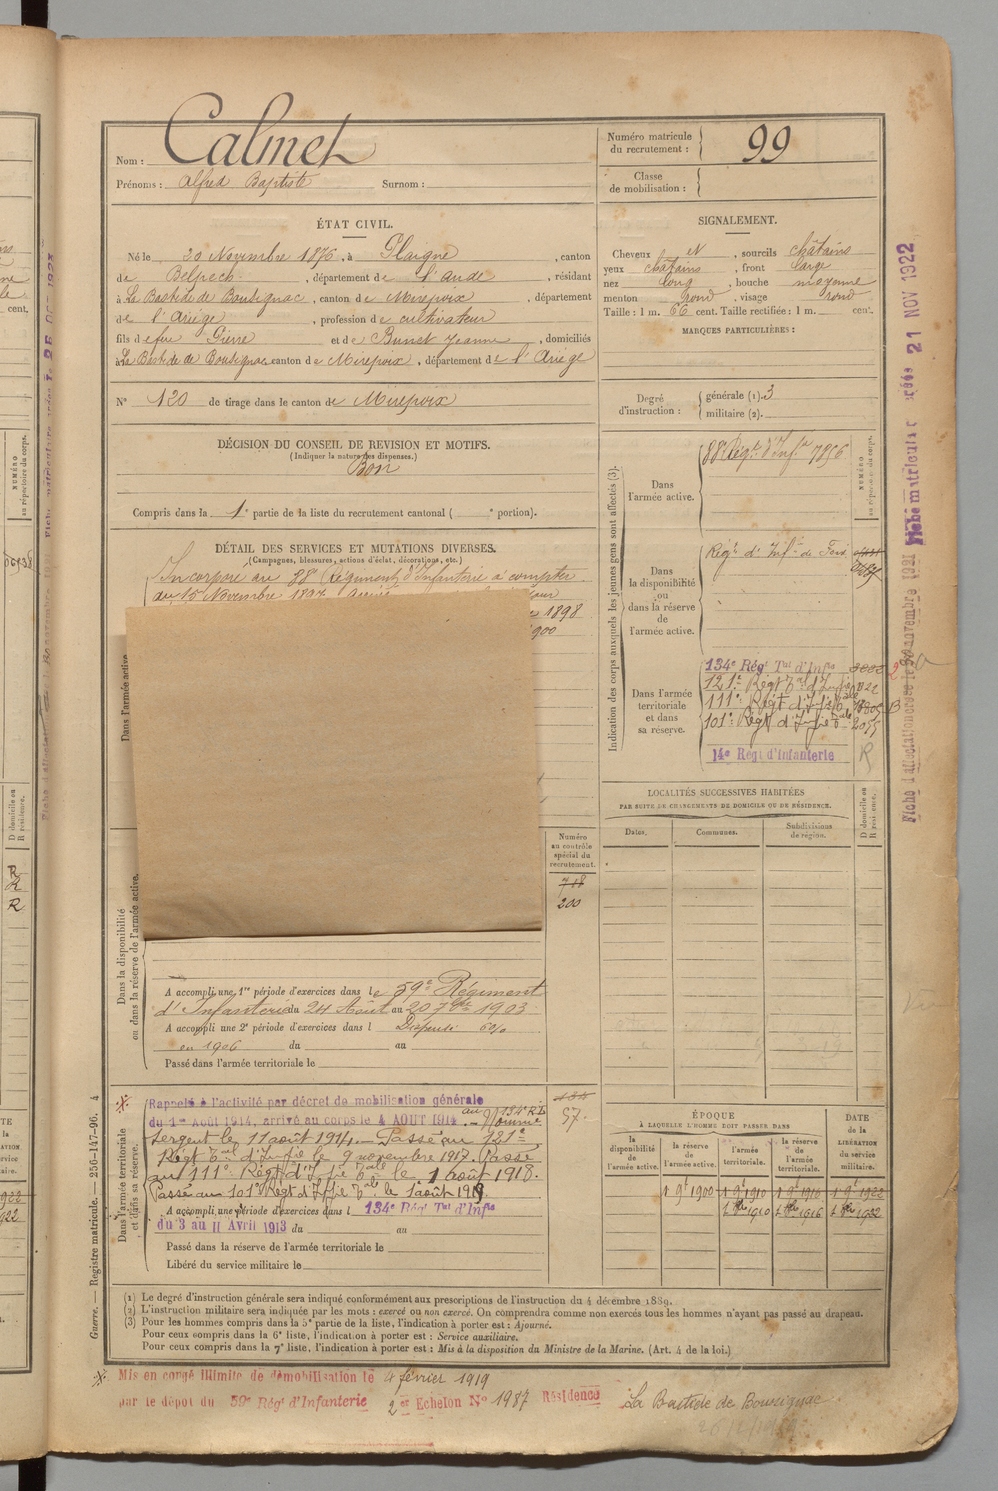 Nom : Calmet
Prénoms : Alfred Baptiste Surnom :
Numéro matricule du recrutement : 99
Classe de mobilisation :
ÉTAT CIVIL.
Né le 20 Novembre 1876, à Plaigne, canton
de Belpech, département de l'Aude, résidant
à La Bastide de Bousignac, canton de Mirepoix, département
de l'Ariège, profession de cultivateur
fils de feu Pierre et de Bunet Jeanne, domiciliés
à La Bastide de Bousignac canton de Mirepoix, département de l'Ariège
N° 120 de tirage dans le canton de Mirepoix
SIGNALEMENT.
Cheveux et, sourcils châtains
yeux châtains, front large
nez long, bouche moyenne
menton rond, visage rond
Taille : 1 m. 66 cent. Taille rectifiée : 1 m. cent.
MARQUES PARTICULIÈRES :
Degré d'instruction : générale (1). 3
militaire (2).
DÉCISION DU CONSEIL DE REVISION ET MOTIFS.
(Indiquer la nature des dispenses.)
Bon
Compris dans la 1e partie de la liste du recrutement cantonal ( e portion).
DÉTAIL DES SERVICES ET MUTATIONS DIVERSES.
(Campagnes, blessures, actions d'éclat, décorations, etc.)
Incorporé au 88e Régiment d'Infanterie à compter
du 15 Novembre 1897
1898
1900
Dans l'armée active.
Dans la disponibilité
ou dans la réserve de l'armée active.
Numéro au contrôle spécial du recrutement.
718
200
A accompli une 1re période d'exercices dans le 59e Régiment
d'Infanterie du 24 Août au 20 7bre 1903
A accompli une 2e période d'exercices dans l Dispensé
en 1906 du au
Passé dans l'armée territoriale le
Dans l'armée territoriale
et dans sa réserve.
Rappelé à l'activité par décret de mobilisation générale
du 1er Août 1914, arrivé au corps le 4 AOUT 1914 au 134e R.I. Nommé
Sergent le 11 août 1914. Passé au 121e
Régt Tal d'Infie le 9 novembre 1917. Passé
au 111e Régt d'Infie Tale le 1 août 1918.
Passé au 101e Régt d'Infie Tle le 1 août 1918.
57.
A accompli une période d'exercices dans l 134e Régt Tal d'Infie
du 3 au 11 Avril 1913 du au
Passé dans la réserve de l'armée territoriale le
Libéré du service militaire le
Indication des corps auxquels les jeunes gens sont affectés (3).
NUMÉRO au répertoire du corps.
Dans l'armée active.
88e Régt d'Infie 7856
Dans la disponibilité ou dans la réserve de l'armée active.
Régt d'Infie de Foix
Dans l'armée territoriale et dans sa réserve.
134e Régt Tal d'Infie
121e Régt Tal d'Infie
111e Régt d'Infie Tale
101e Régt d'Infie Tale 2055
14e Régt d'Infanterie R
LOCALITÉS SUCCESSIVES HABITÉES
PAR SUITE DE CHANGEMENTS DE DOMICILE OU DE RÉSIDENCE.
Dates. Communes. Subdivisions de région.
D domicile ou R résidence.
ÉPOQUE
À LAQUELLE L'HOMME DOIT PASSER DANS
la disponibilité de l'armée active. la réserve de l'armée active. l'armée territoriale. la réserve de l'armée territoriale.
DATE de la LIBÉRATION du service militaire.
1 9bre 1900 1 9bre 1910 1 9bre 1916 1 9bre 1922
1 8bre 1910 1 8bre 1916 1 8bre 1922
(1) Le degré d'instruction générale sera indiqué conformément aux prescriptions de l'instruction du 4 décembre 1889.
(2) L'instruction militaire sera indiquée par les mots : exercé ou non exercé. On comprendra comme non exercés tous les hommes n'ayant pas passé au drapeau.
(3) Pour les hommes compris dans la 5e partie de la liste, l'indication à porter est : Ajourné.
Pour ceux compris dans la 6e liste, l'indication à porter est : Service auxiliaire.
Pour ceux compris dans la 7e liste, l'indication à porter est : Mis à la disposition du Ministre de la Marine. (Art. 4 de la loi.)
Guerre. — Registre matricule. — 256-147-96. 4
Mis en congé illimité de démobilisation le 4 février 1919
par le dépôt du 59e Régt d'Infanterie 2e Echelon N° 1987 Résidence La Bastide de Bousignac
21 NOV 1922